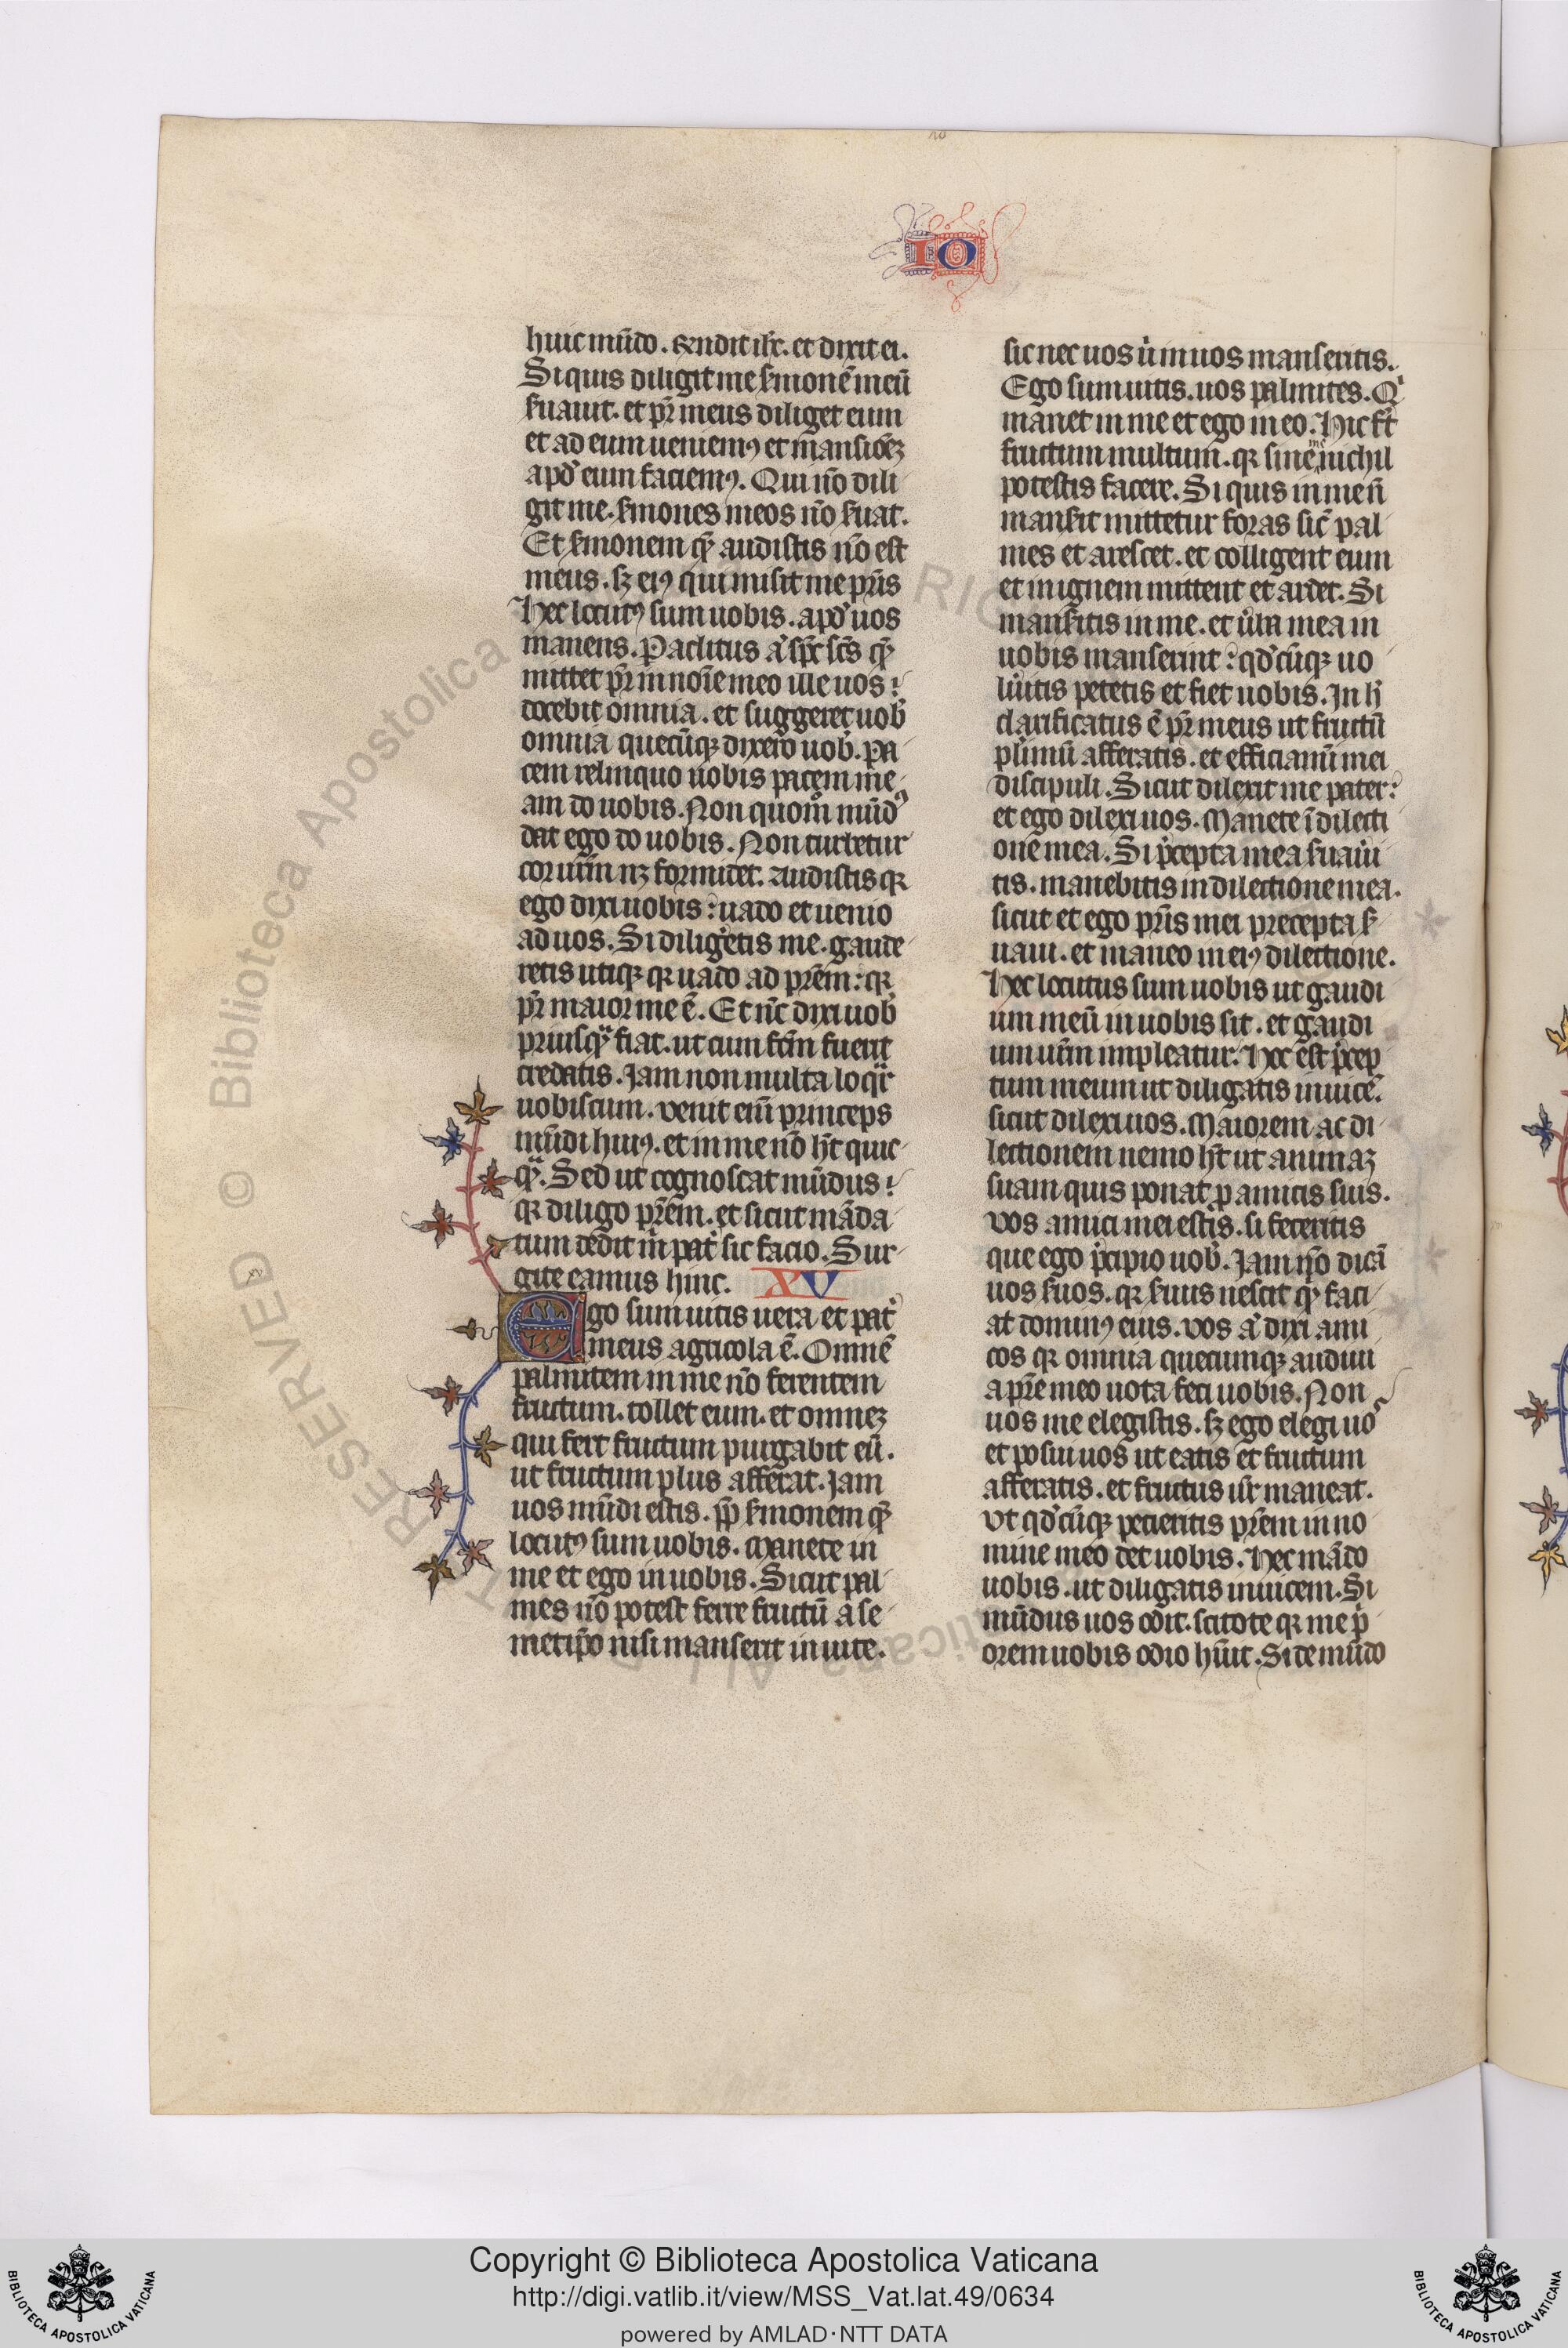 IO
huic mũdo. Rñdit ihc̄. et dixit ei.
Si quis diligit me s̾monẽ meũ
s̾uauit. et pr̃ meus diliget eum
et ad eum ueniemꝰ et mansiõeꝫ
apđ eum faciemꝰ. Qui nõ dili
git me. s̾mones meos nõ s̾uat.
Et s̾monem q̃ꝫ audistis nõ est
meus. sꝫ eiꝰ qui misit me pr̃is
Hec locutꝰ sum uobis. apđ uos
manens. Paclitus aͧ sp̃c sc̃s q̃ꝫ
mittet pr̃ in noĩe meo ille uos:
docebit omnia. et suggeret uob̾
omnia quecũqꝫ dixero uob̾. Pa
cem relinquo uobis pacem me
am do uobis. Non quom̃ mũdꝰ
dat ego do uobis. Non turbetur
cor ur̃m nꝫ formidet. Audistis qꝛ
ego dixi uobis: uado et uenio
ad uos. Si diligetis me. gaude
retis utiqꝫ qꝛ uado ad pr̃em: qꝛ
pr̃ maior me ẽ. Et nũc dixi uob̾
priusq̃ꝫ fiat. ut cum fc̃m fuerit
credatis. Jam non multa loq̃r
uobiscum. venit eni᷒ princeps
mũdi huiꝰ. et in me nõ hꝫt quic
q̃ꝫ. Sed ut cognoscat mũdus:
qꝛ diligo pr̃em. et sicut mãda
tum dedit m̾ pat̾ sic facio. Sur
gite eamus hinc. XV
Ego sum uitis uera et pat̾
meus agricola ẽ. Omnẽ
palmitem in me nõ ferentem
fructum. tollet eum. et omneꝫ
qui fert fructum purgabit eũ.
ut fructum plus afferat. Jam
uos mũdi estis. pp̃ s̾monem q̃ꝫ
locutꝰ sum uobis. Manete in
me et ego in uobis. Sicut pal
mes nõ potest ferre fructũ a se
metip̃o nisi manserit in uite.
sic nec uos n̾ in uos manseritis.
Ego sum uitis. uos palmites. Qͥ
manet in me et ego in eo. Hic f̾t
fructum multum. qꝛ sine me nichil
potestis facere. Si quis in me ñ
mans̾it mittetur foras sic̃ pal
mes et arescet. et colligent eum
et in ignem mittent et ardet. Si
mans̾itis in me. et ũba mea in
uobis manserint: qđcũqꝫ uo
lũitis petetis et fiet uobis. In h̾
clarificatus ẽ pr̃ meus ut fructũ
pl̾imũ afferatis. et efficiamĩ mei
discipuli. Sicut dilexit me pater:
et ego dilexi uos. Manete ĩ dilecti
one mea. Si p̃cepta mea s̾uaũi
tis. manebitis in dilectione mea.
sicut et ego pr̃is mei precepta s̾
uaui. et maneo in eiꝰ dilectione.
Hec locutus sum uobis ut gaudi
um meũ in uobis sit. et gaudi
um ur̃m impleatur. Hec est p̃cep
tum meum ut diligatis inuicẽ.
sicut dilexi uos. Maiorem ac di
lectionem nemo hꝫt ut animaꝫ
suam quis ponat ꝓ amicis suis.
Vos amici mei estis. si feceritis
que ego p̃cipio uob̾. Jam nõ dicã
uos s̾uos. qꝛ s̾uus nescit q̃ꝫ faci
at dominꝰ eius. Vos aͧ dixi ami
cos qꝛ omnia quecumqꝫ audiui
a pr̃e meo nota feci uobis. Non
uos me elegistis. sꝫ ego elegi uos
et posui uos ut eatis et fructum
afferatis. et fructus ur̃ maneat.
Vt qđcũqꝫ petieritis pr̃em in no
mine meo det uobis. Hec mãdo
uobis. ut diligatis inuicem. Si
mũdus uos odit. scitote qꝛ me p̃
orem uobis odio hũit. Si de mũdo
Copyright © Biblioteca Apostolica Vaticana
http://digi.vatlib.it/view/MSS_Vat.lat.49/0634
powered by AMLAD·NTT DATA
BIBLIOTECA APOSTOLICA VATICANA
BIBLIOTECA APOSTOLICA VATICANA